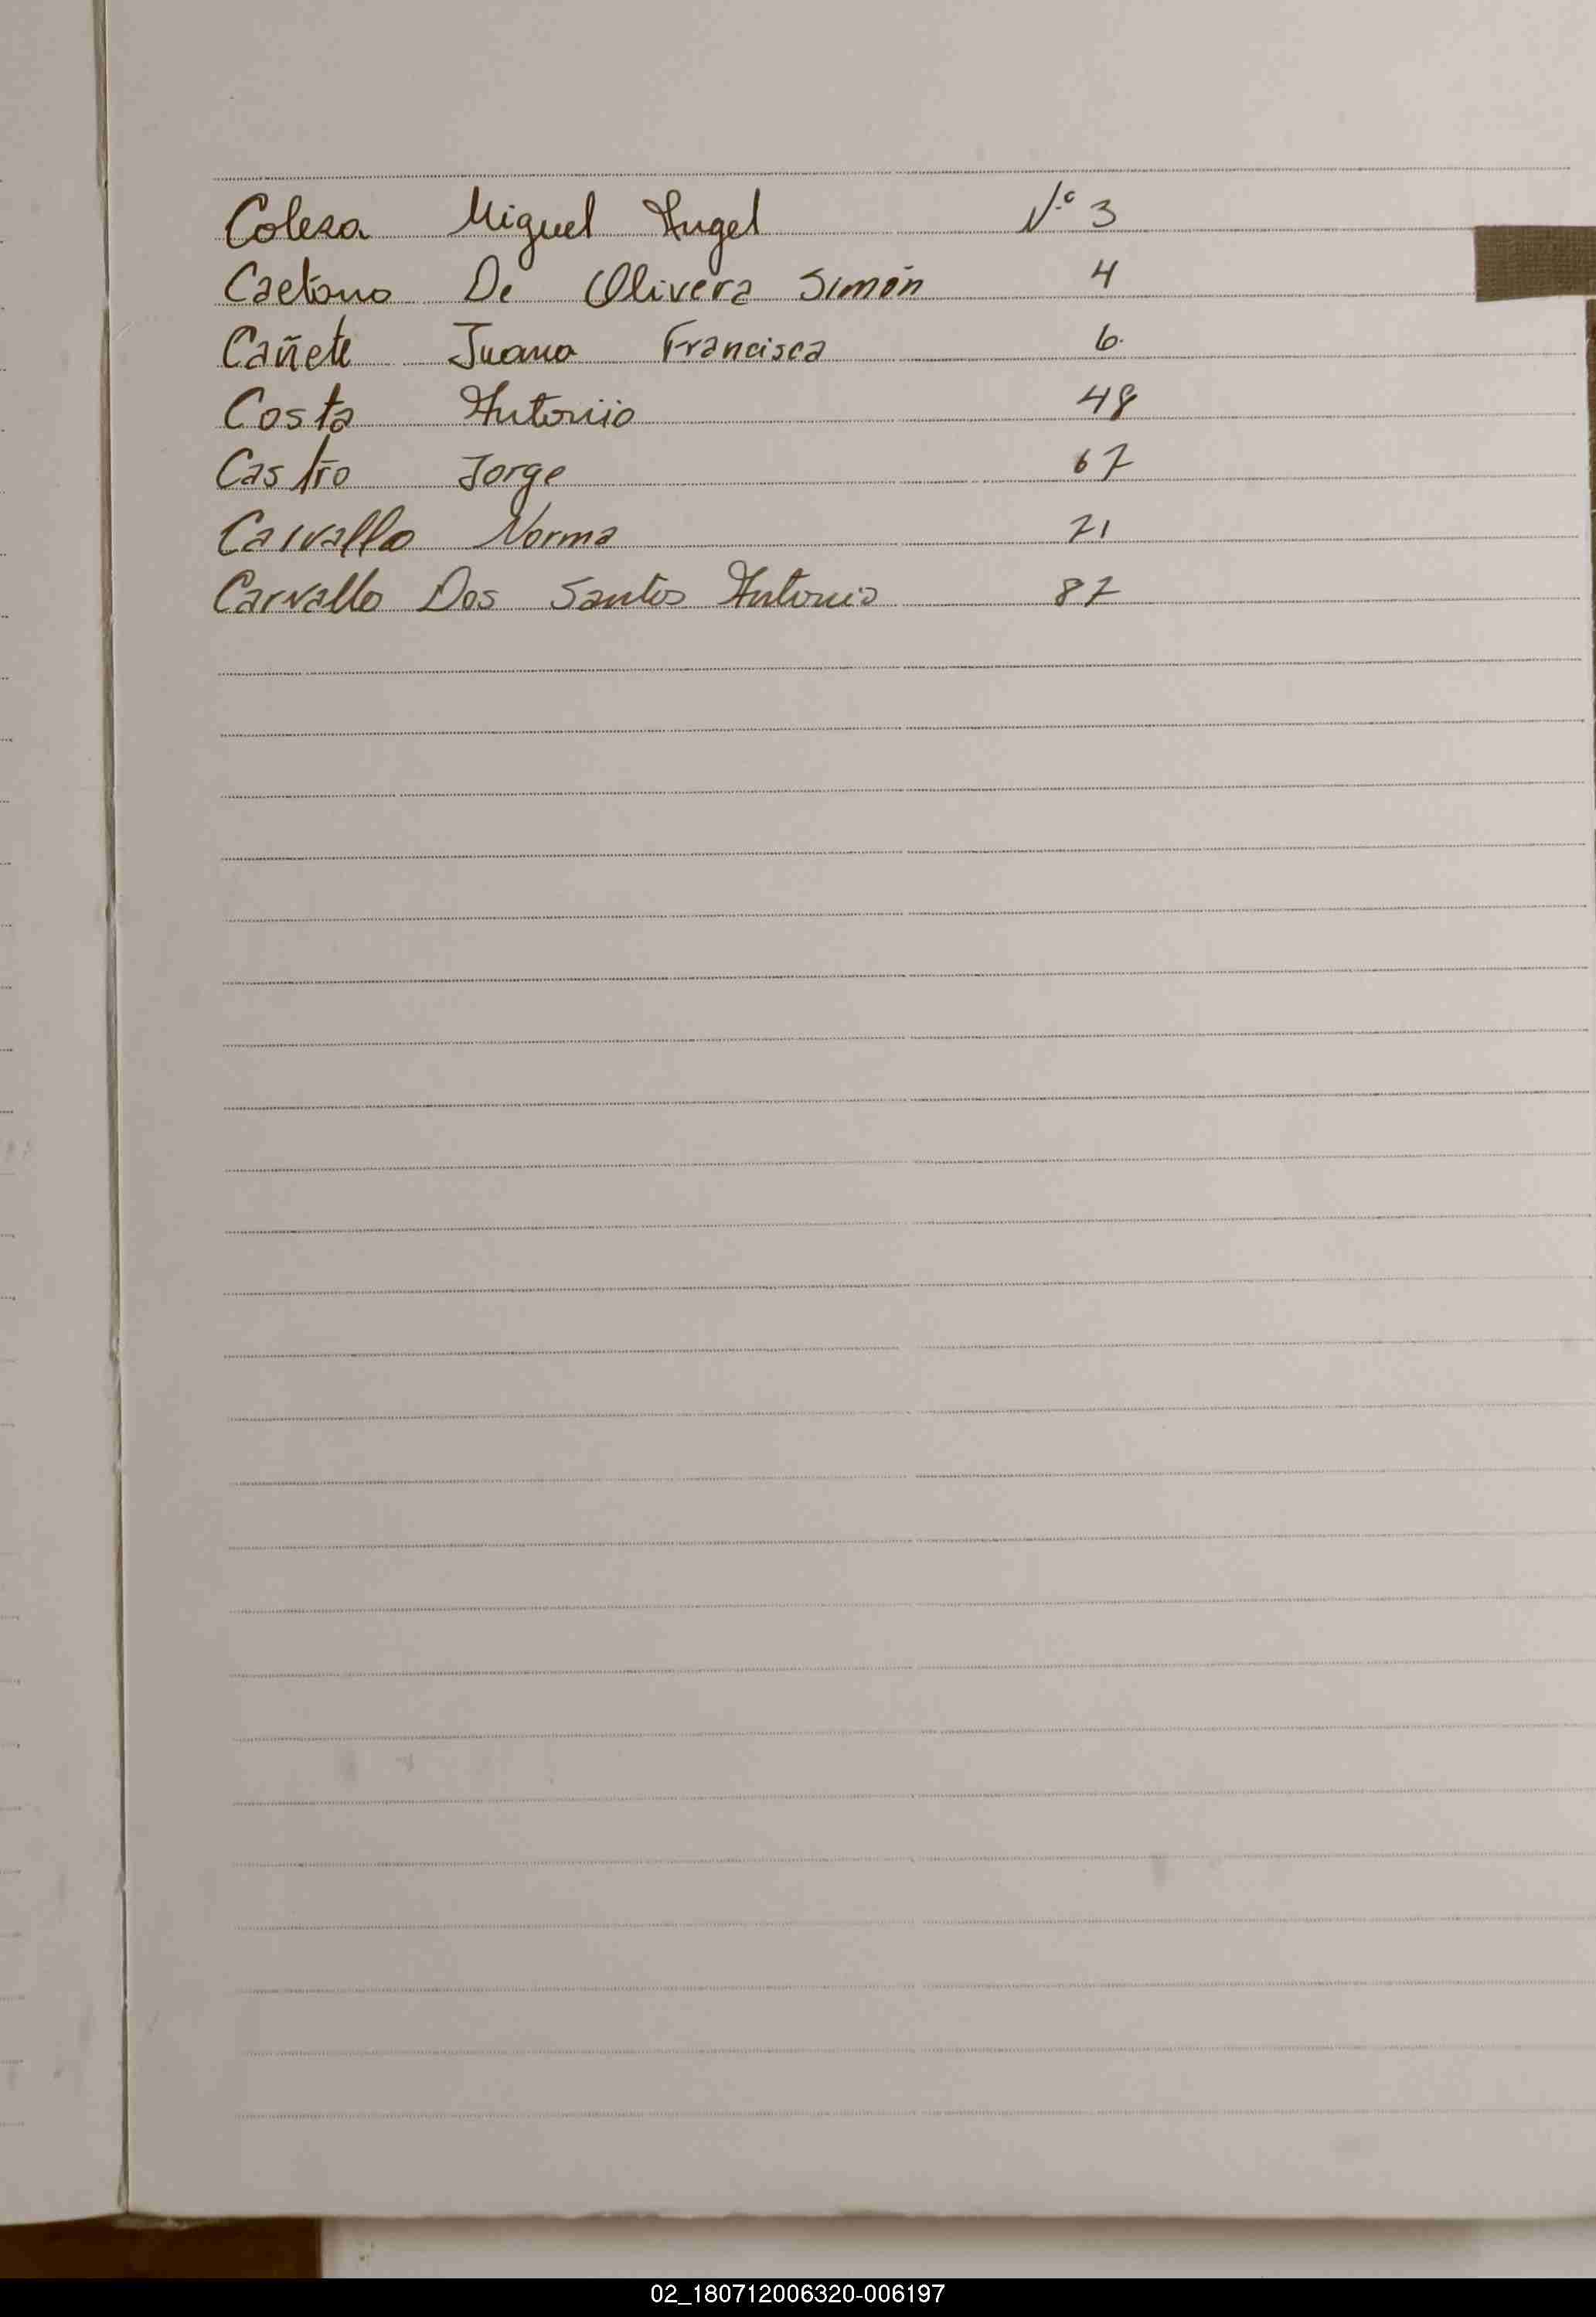 Colesa Miguel Angel N.º 3
Caetano De Olivera Simón 4
Cañete Juana Francisca 6.
Costa Antonio 48
Castro Jorge 67
Carvallo Norma 71
Carvallo Dos Santos Antonio 87
02_180712006320-006197